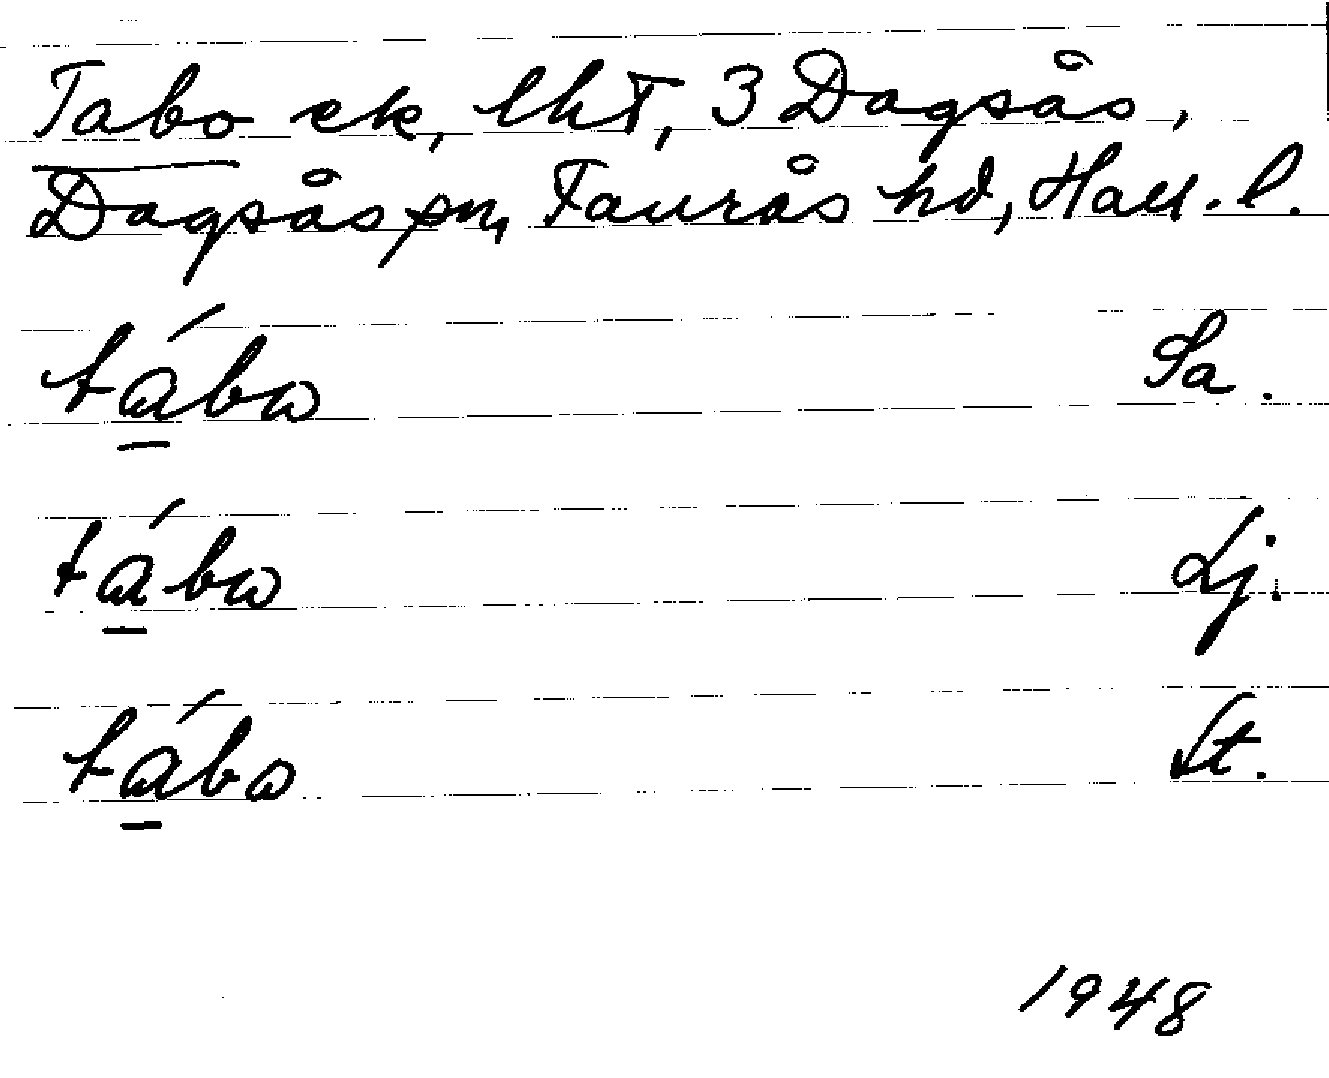 Tabo ek, lht, 3 Dagsås,
Dagsås sn, Faurås hd, Hall. l.
tábω Sa.
tábω Lj.
tábω St.
1948